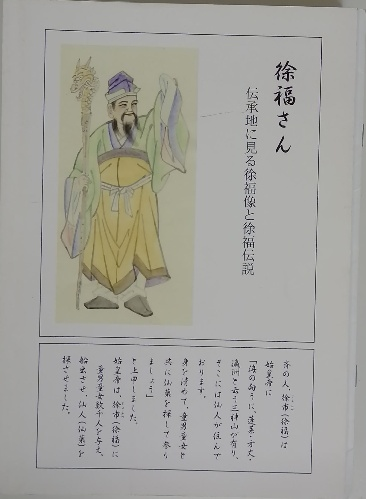 徐福さん
伝承地に見る徐福像と徐福伝説
斉の人、徐市(徐福)は
始皇帝に
「海の向うに、蓬莱・方丈・
瀛洲と云う三神山が有り、
そこには仙人が住んで
おります。
身を清めて、童男童女と
共に仙薬を探して参り
ましょう」
と上申しました。
始皇帝は、徐市(徐福)に
童男童女数千人を与え、
始出させ、仙人(仙薬)を
探させました。